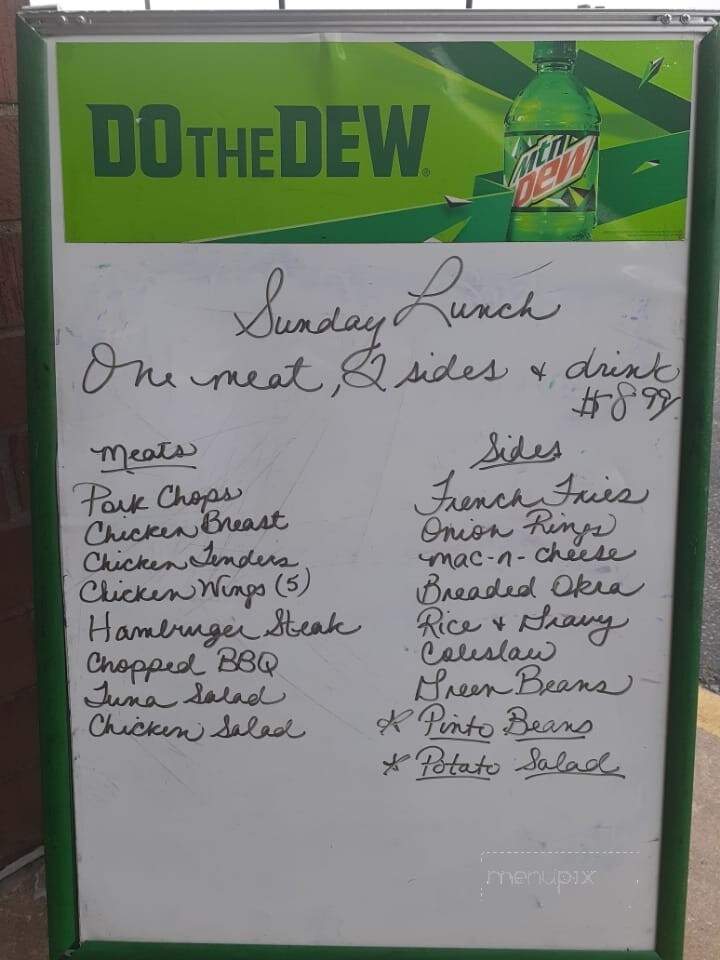 DO THE DEW®
mtn DEW
Sunday Lunch
One meat, 2 sides & drink
$8.99
Meats
Pork Chops
Chicken Breast
Chicken Tenders
Chicken Wings (5)
Hamburger Steak
Chopped BBQ
Tuna Salad
Chicken Salad
Sides
French Fries
Onion Rings
mac-n-cheese
Breaded Okra
Rice & Gravy
Coleslaw
Green Beans
* Pinto Beans
* Potato Salad
menupix